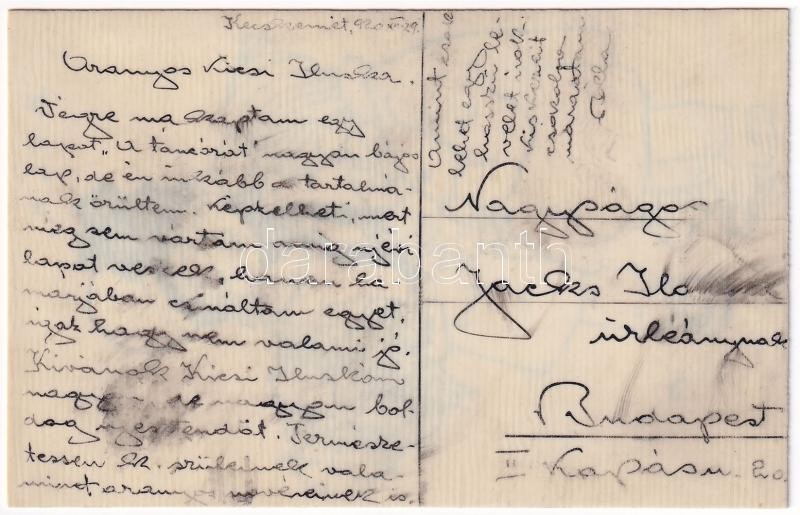 Kecskemét, 920 XII. 29.
Aranyos Kicsi Iluska.
Végre ma kaptam egy
lapot. "A táncórát" nagyon bájos
lap, de én inkább a tartalmá-
nak örültem. Képzelheti, mert
még sem vártam amíg újévi
lapot veszek, hanem ha-
marjában csináltam egyet,
igaz hogy nem valami jó.
Kívánok Kicsi Iluskám
nagy - de nagyon bol-
dog új esztendőt. Természe-
tessen k. szüleinek vala-
mint aranyos nővéreinek is.
Amint csak
lehet egy
hosszú le-
velet írok.
Kis kezeit
csókolja
Nagyságos
Jacks Ilo
úrleánynak
Budapest
III Kapásu. 20.
darabanth